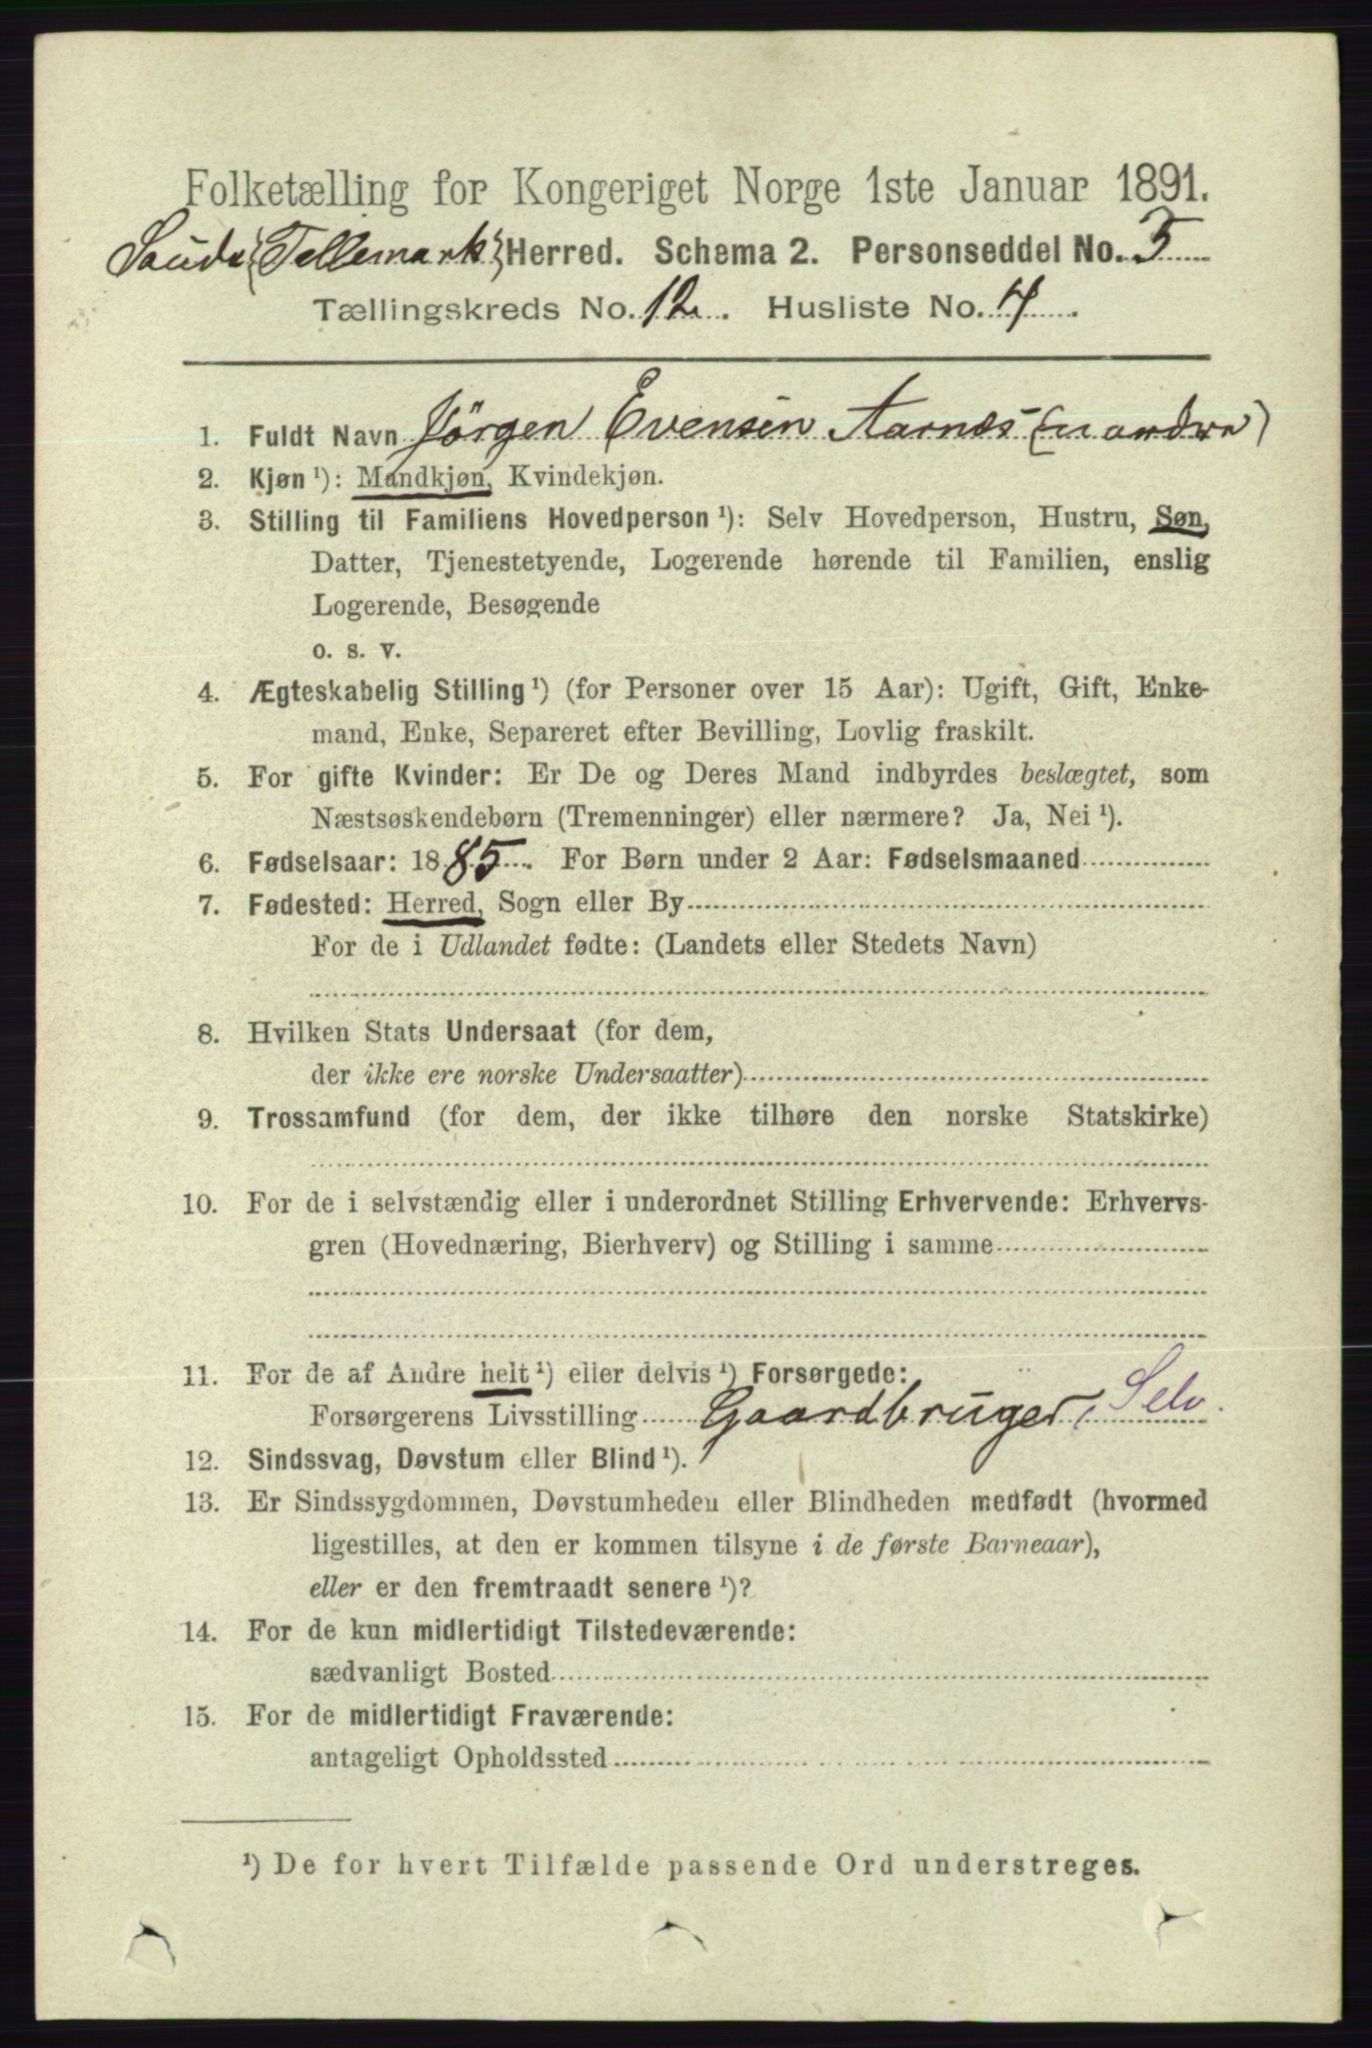 Folketælling for Kongeriget Norge 1ste Januar 1891.
Saude (Tellemark) Herred. Schema 2. Personseddel No. 5
Tællingskreds No. 12. Husliste No. 4.
1. Fuldt Navn Jörgen Evensen Aarnæs (nordre)
2. Kjøn ¹): Mandkjøn, Kvindekjøn.
3. Stilling til Familiens Hovedperson ¹): Selv Hovedperson, Hustru, Søn,
Datter, Tjenestetyende, Logerende hørende til Familien, enslig
Logerende, Besøgende
o. s. v.
4. Ægteskabelig Stilling ¹) (for Personer over 15 Aar): Ugift, Gift, Enke-
mand, Enke, Separeret efter Bevilling, Lovlig fraskilt.
5. For gifte Kvinder: Er De og Deres Mand indbyrdes beslægtet, som
Næstsøskendebørn (Tremenninger) eller nærmere? Ja, Nei ¹).
6. Fødselsaar: 1885. For Børn under 2 Aar: Fødselsmaaned
7. Fødested: Herred, Sogn eller By
For de i Udlandet fødte: (Landets eller Stedets Navn)
8. Hvilken Stats Undersaat (for dem,
der ikke ere norske Undersaatter)
9. Trossamfund (for dem, der ikke tilhøre den norske Statskirke)
10. For de i selvstændig eller i underordnet Stilling Erhvervende: Erhvervs-
gren (Hovednæring, Bierhverv) og Stilling i samme
11. For de af Andre helt ¹) eller delvis ¹) Forsørgede:
Forsørgerens Livsstilling Gaardbruger, Selv.
12. Sindssvag, Døvstum eller Blind ¹).
13. Er Sindssygdommen, Døvstumheden eller Blindheden medfødt (hvormed
ligestilles, at den er kommen tilsyne i de første Barneaar),
eller er den fremtraadt senere ¹)?
14. For de kun midlertidigt Tilstedeværende:
sædvanligt Bosted
15. For de midlertidigt Fraværende:
antageligt Opholdssted
¹) De for hvert Tilfælde passende Ord understreges.